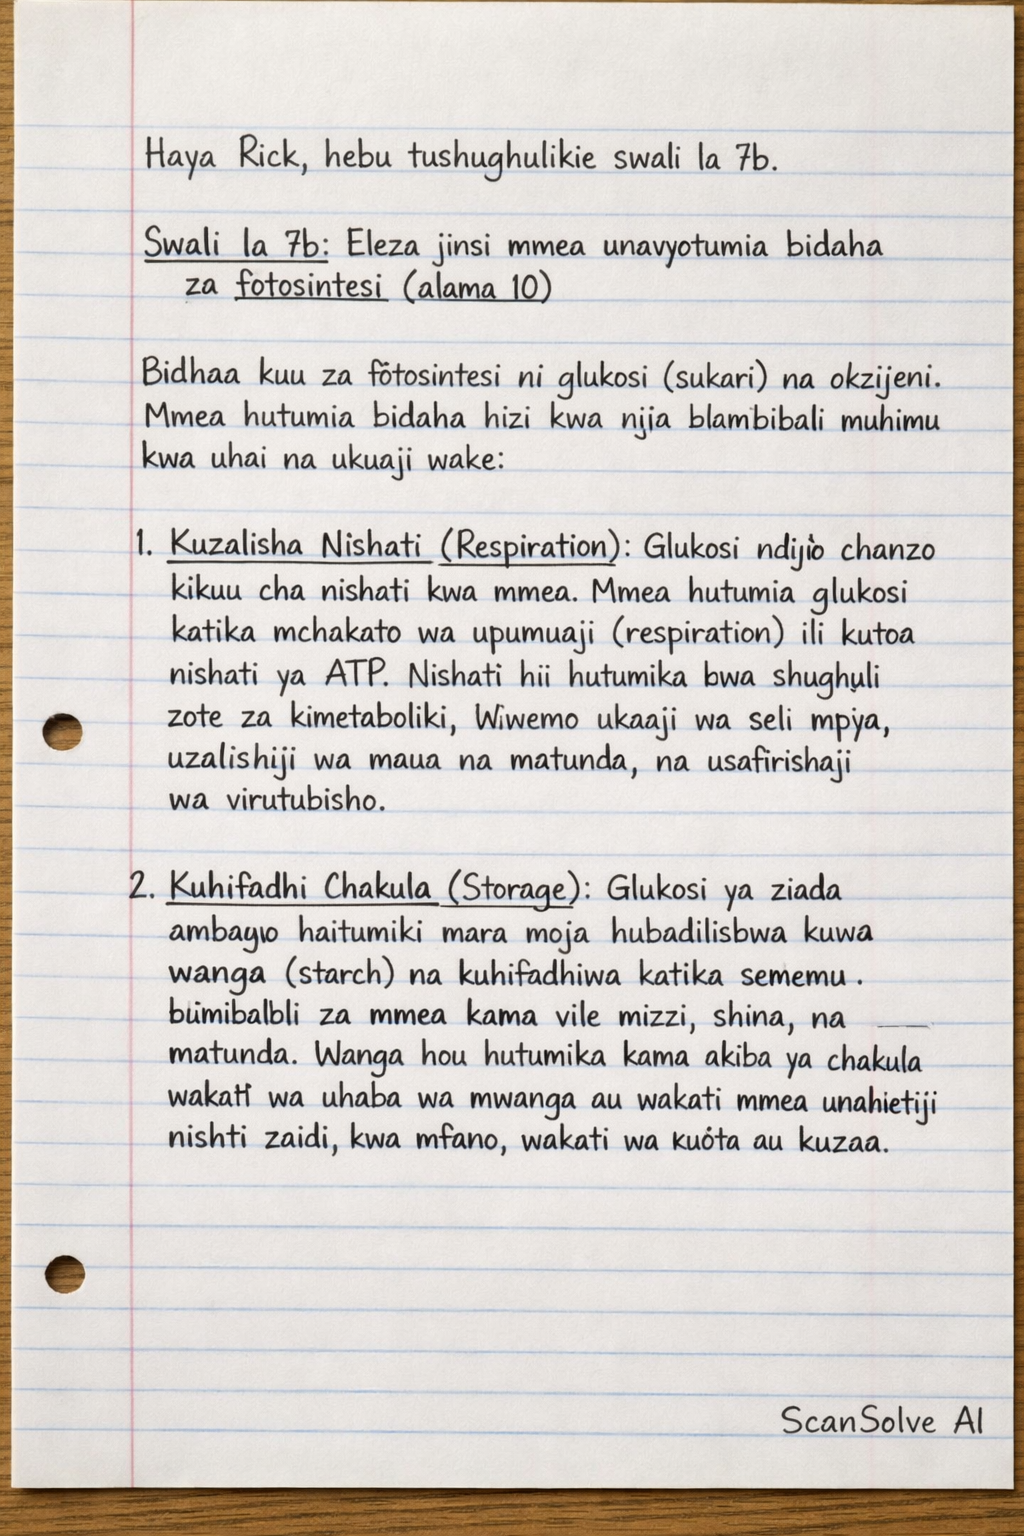 Haya Rick, hebu tushughulikie swali la 7b.
Swali la 7b: Eleza jinsi mmea unavyotumia bidaha
za fotosintesi (alama 10)
Bidhaa kuu za fotosintesi ni glukosi (sukari) na okzijeni.
Mmea hutumia bidaha hizi kwa njia blambibali muhimu
kwa uhai na ukuaji wake:
1. Kuzalisha Nishati (Respiration): Glukosi ndijio chanzo
kikuu cha nishati kwa mmea. Mmea hutumia glukosi
katika mchakato wa upumuaji (respiration) ili kutoa
nishati ya ATP. Nishati hii hutumika bwa shughuli
zote za kimetaboliki, Wiwemo ukaaji wa seli mpya,
uzalishiji wa maua na matunda, na usafirishaji
wa virutubisho.
2. Kuhifadhi Chakula (Storage): Glukosi ya ziada
haitumiki mara moja hubadilisbwa kuwa
wanga (starch) na kuhifadhiwa katika sememu.
za mmea kama vile mizzi, shina, na
matunda. Wanga hou hutumika kama akiba ya chakula
wakati wa uhaba wa mwanga au wakati mmea unahietiji
nishti zaidi, kwa mfano, wakati wa kuóta au kuzaa.
ScanSolve AI